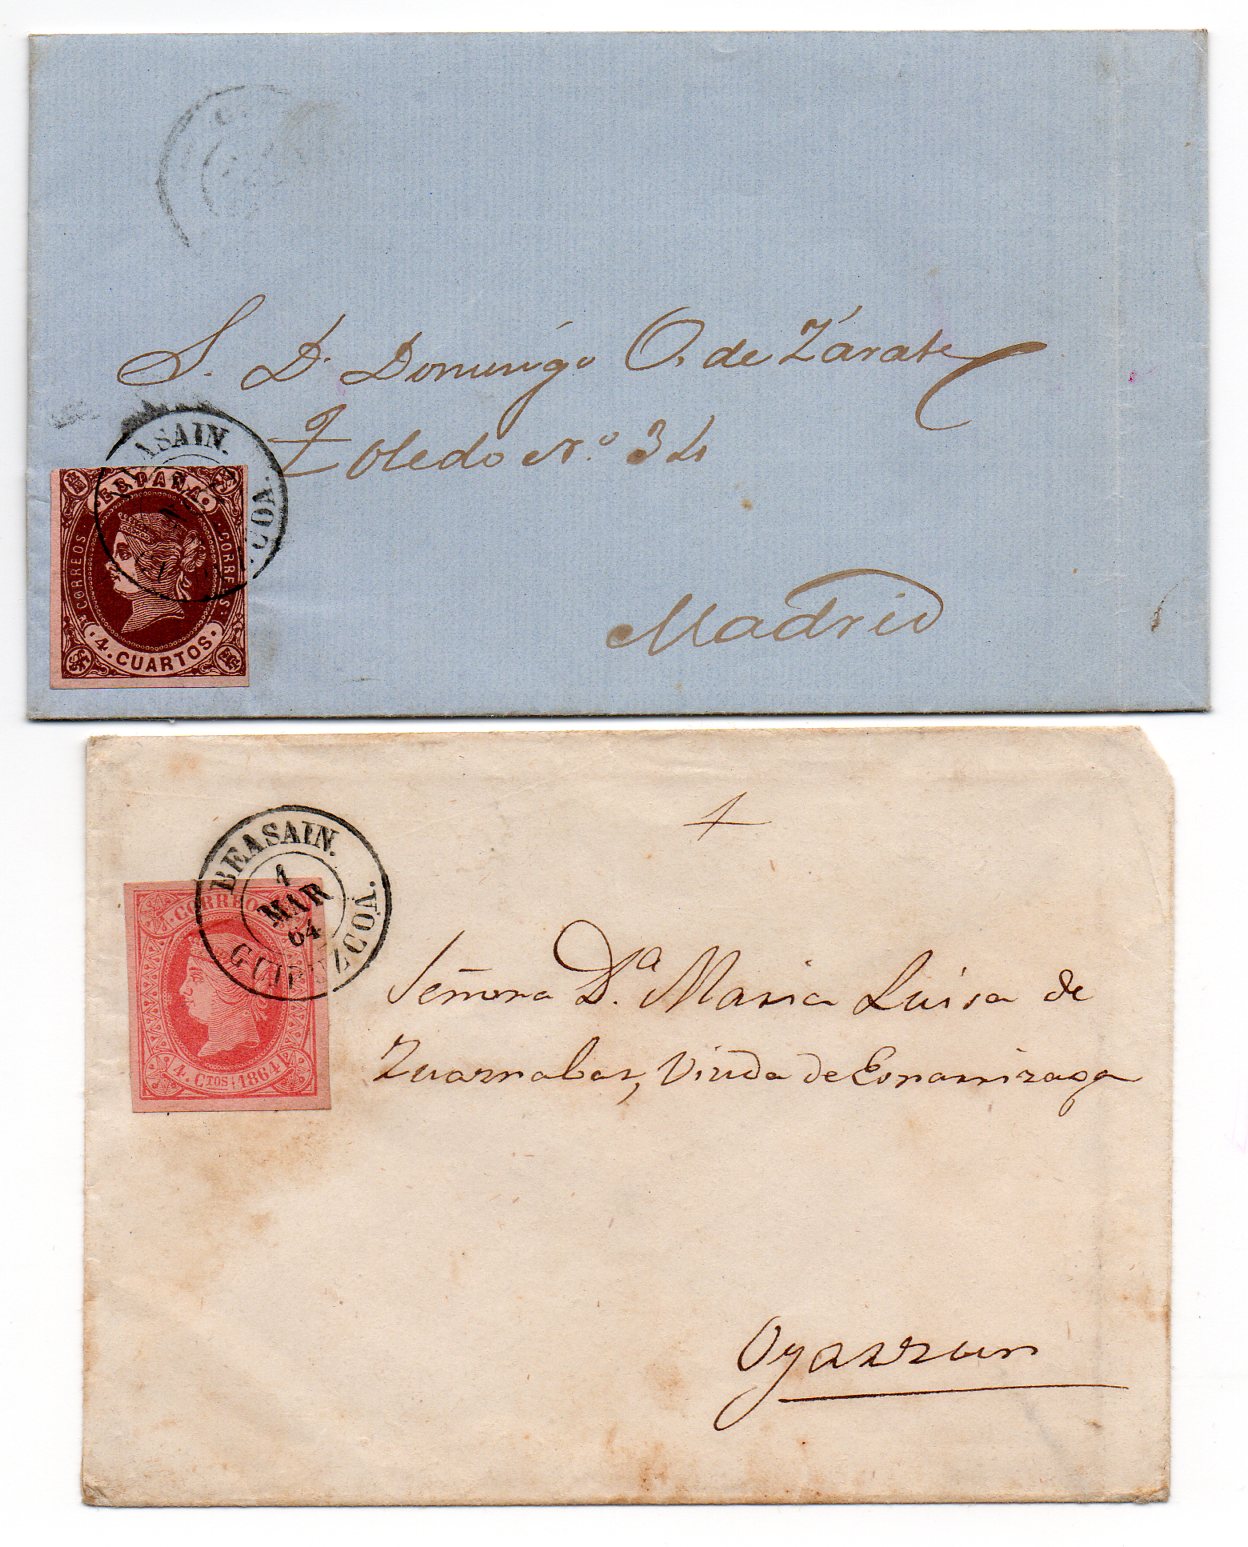 S. D. Domingo O. de Zárate
Toledo N.º 34
Madrid
ASAIN.
ESPAÑA
CORREOS
CORREOS
4. CUARTOS
BEASAIN.
1
MAR
64
GUIPUZCOA.
CORREOS
4. CTOS 1864
Señora D.ª Maria Luisa de
Viuda de
Oyarzun